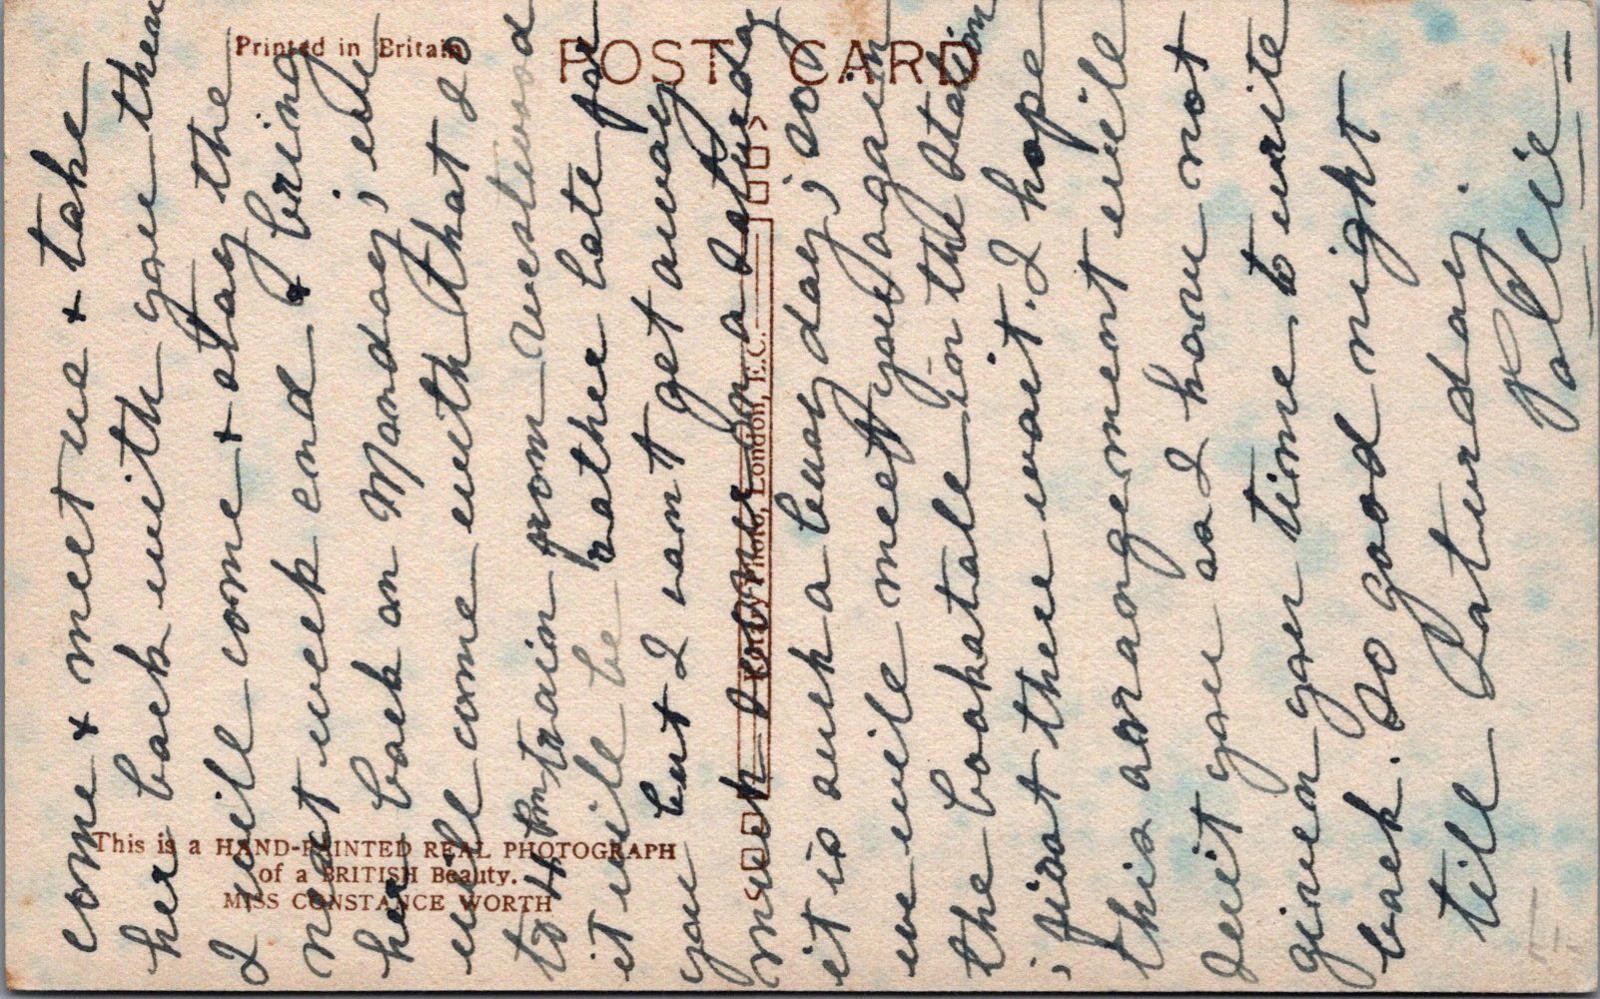 Printed in Britain
POST CARD
This is a HAND-PAINTED REAL PHOTOGRAPH
of a BRITISH Beauty.
MISS CONSTANCE WORTH
Photo, London, E.C.
come & meet us & take
her back with you then
I will come & stay the
next week end & bring
her back on Monday, she
will come with that so
to 4 pm train from Westwood
it will be rather late for
you but I cant get away
much sooner on a Saturday
it is such a busy day, so
we will meet you again
the bookstale in the station
, just there wait. I hope
this arrangement will
suit you as I have not
given you time to write
back. So good night
till Saturday.
Pollie